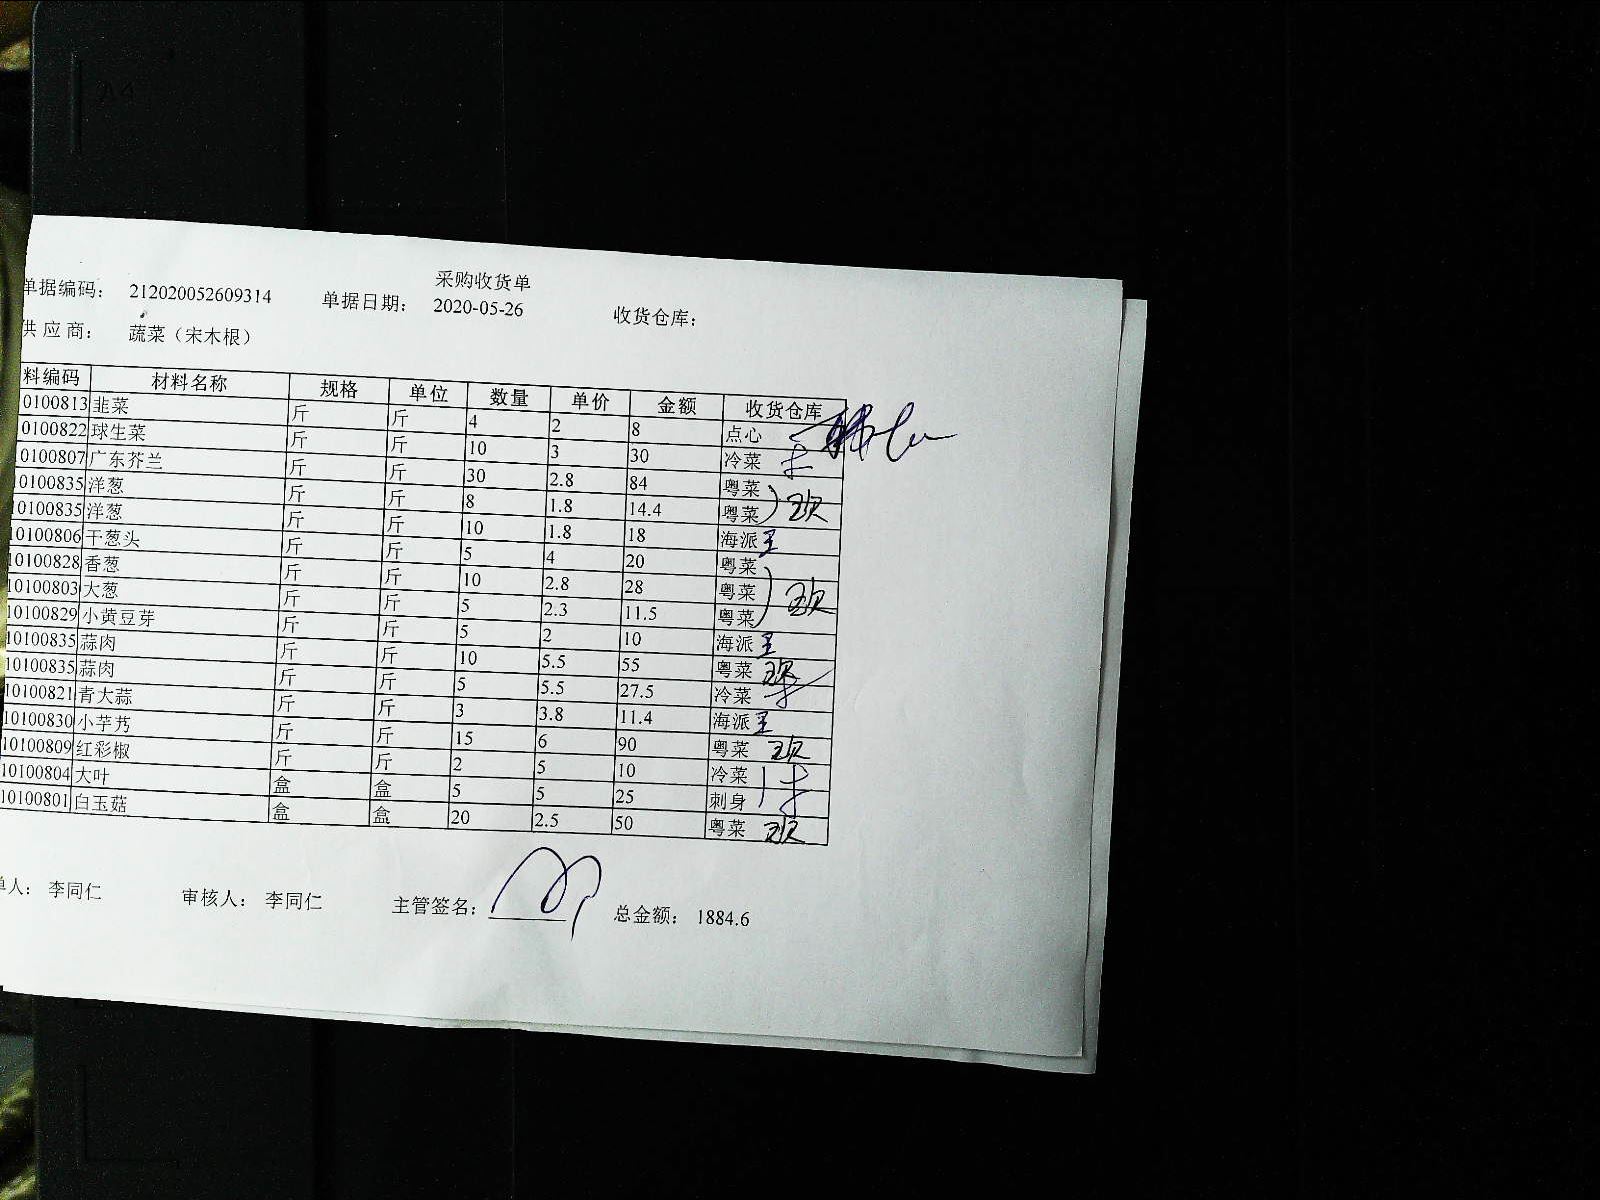 采购收货单
单据编码： 212020052609314 单据日期： 2020-05-26 收货仓库：
供应商： 蔬菜（宋木根）
料编码 材料名称 规格 单位 数量 单价 金额 收货仓库
0100813 韭菜 斤 斤 4 2 8 点心
0100822 球生菜 斤 斤 10 3 30 冷菜
0100807 广东芥兰 斤 斤 30 2.8 84 粤菜
0100835 洋葱 斤 斤 8 1.8 14.4 粤菜
0100835 洋葱 斤 斤 10 1.8 18 海派 王
10100806 干葱头 斤 斤 5 4 20 粤菜
10100828 香葱 斤 斤 10 2.8 28 粤菜
10100803 大葱 斤 斤 5 2.3 11.5 粤菜
10100829 小黄豆芽 斤 斤 5 2 10 海派 王
10100835 蒜肉 斤 斤 10 5.5 55 粤菜
10100835 蒜肉 斤 斤 5 5.5 27.5 冷菜
10100821 青大蒜 斤 斤 3 3.8 11.4 海派 王
10100830 小芋艿 斤 斤 15 6 90 粤菜
10100809 红彩椒 斤 斤 2 5 10 冷菜
10100804 大叶 盒 盒 5 5 25 刺身
10100801 白玉菇 盒 盒 20 2.5 50 粤菜
单人： 李同仁 审核人： 李同仁 主管签名： 总金额： 1884.6